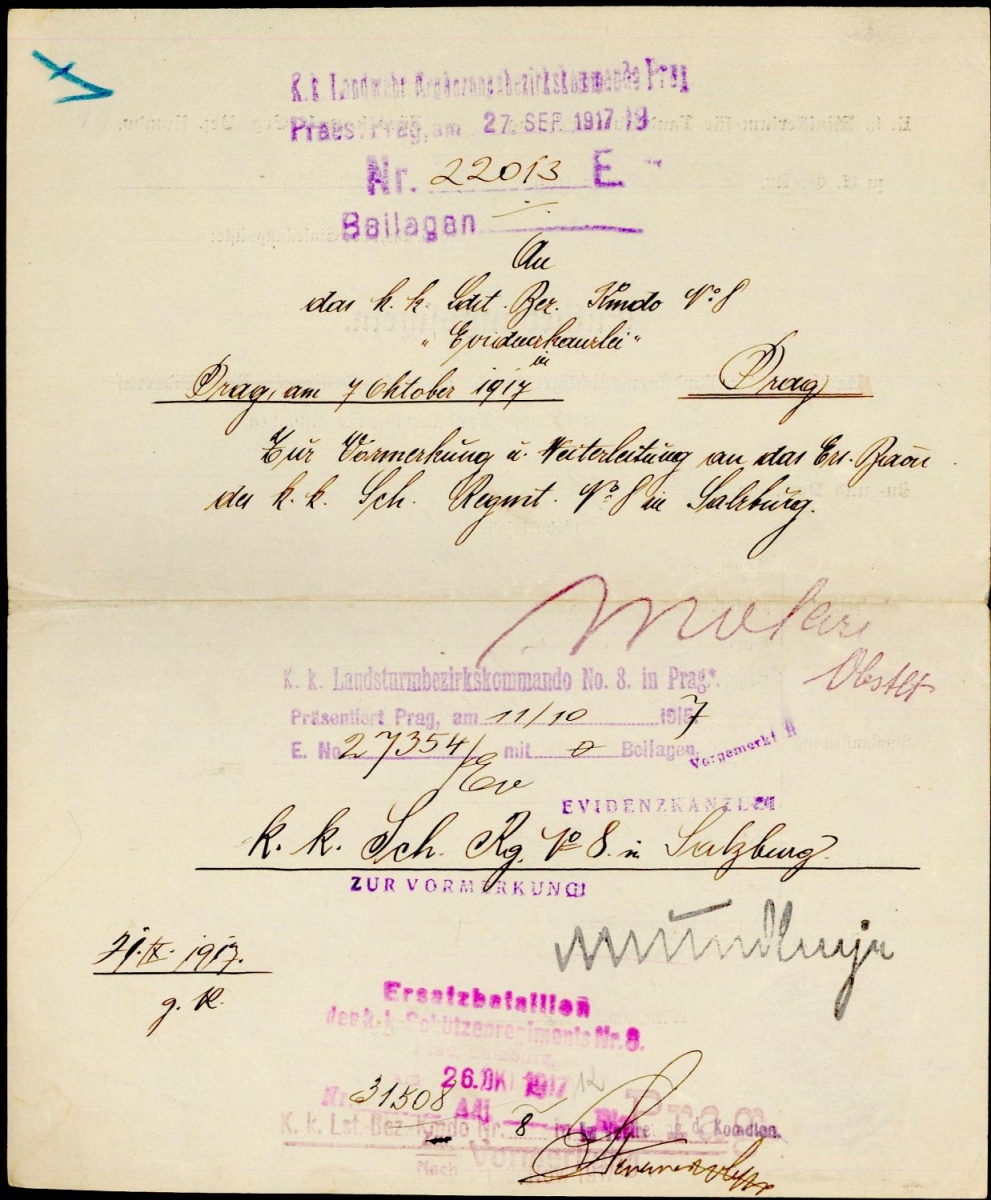 K. k. Landwehr Ergänzungsbezirkskommando Prag
Praes. Prag, am 27 SEP. 1917 19
Nr. 22013 E
Beilagen
An
das k. k. Ldst. Bez. Kmdo No 8
„Evidenzkanzlei"
in
Prag, am 7 Oktober 1917
Prag
Zur Vormerkung u. Weiterleitung an das Ers. Baon
des k. k. Sch. Regmt. No 8 in Salzburg.
Obstlt
K. k. Landsturmbezirkskommando No. 8. in Prag.
Präsentiert Prag, am 11/10 1915 7
E. No 27354/Ev mit 0 Beilagen.
Vorgemerkt
EVIDENZKANZLEI
k. k. Sch. Rg. No 8. in Salzburg.
ZUR VORMERKUNG!
1917.
Ersatzbataillon
des k. k. Schützenregiments Nr. 8.
Salzburg,
26. OKT 1917 12
Nr. 31508 Adj.
Prag
K. k. Lst. Bez. Kmdo Nr. 8 in
d. Komdten.
Nach